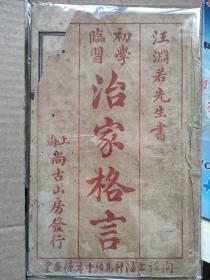 汪淵若先生書
初學臨習
治家格言
上海尚古山房發行